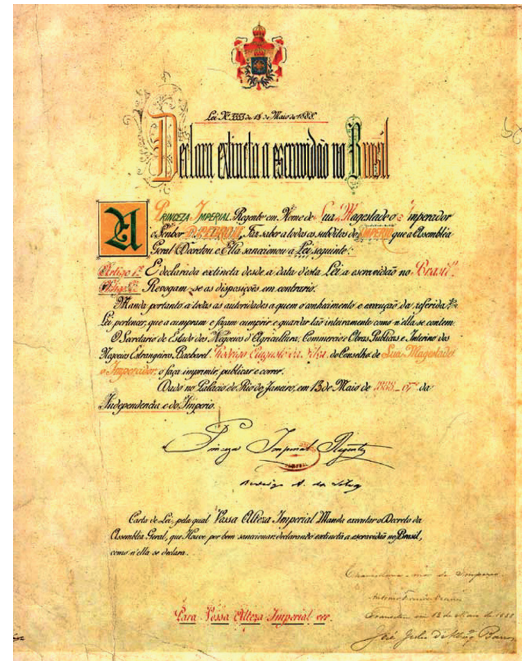 Lei Nº 3353 de 13 de Maio de 1888.
Declara extincta a escravidão no Brasil
A PRINCEZA IMPERIAL Regente em Nome de Sua Magestade o Imperador
o Senhor D. PEDRO II, Faz saber a todos os subditos do IMPERIO que a Assembléa
Geral Decretou e Ella sanccionou a Lei seguinte:
Artigo 1º É declarada extincta desde a data d'esta Lei a escravidão no Brasil.
Revogam-se as disposições em contrario.
Manda portanto a todas as autoridades a quem o conhecimento e execução da referida
Lei pertencer, que a cumpram e façam cumprir e guardar tão inteiramente como n'ella se contem.
O Secretario de Estado dos Negocios d'Agricultura, Commercio e Obras Publicas e Interino dos
Negocios Estrangeiros, Bacharel Rodrigo Augusto da Silva do Conselho de Sua Magestade
o Imperador, o faça imprimir, publicar e correr.
Dado no Palacio do Rio de Janeiro, em 13 de Maio de 1888_67º da
Independencia e do Imperio.
Princeza Imperial Regente
Rodrigo A. da Silva
Carta de Lei, pela qual Vossa Alteza Imperial Manda executar o Decreto da
Assembléa Geral, que Houve por bem sanccionar, declarando extincta a escravidão no Brasil,
como n'ella se declara.
Para Vossa Alteza Imperial ver.
do Imperio
Antonio Ferreira Vianna
de Maio de 1888
José Julio